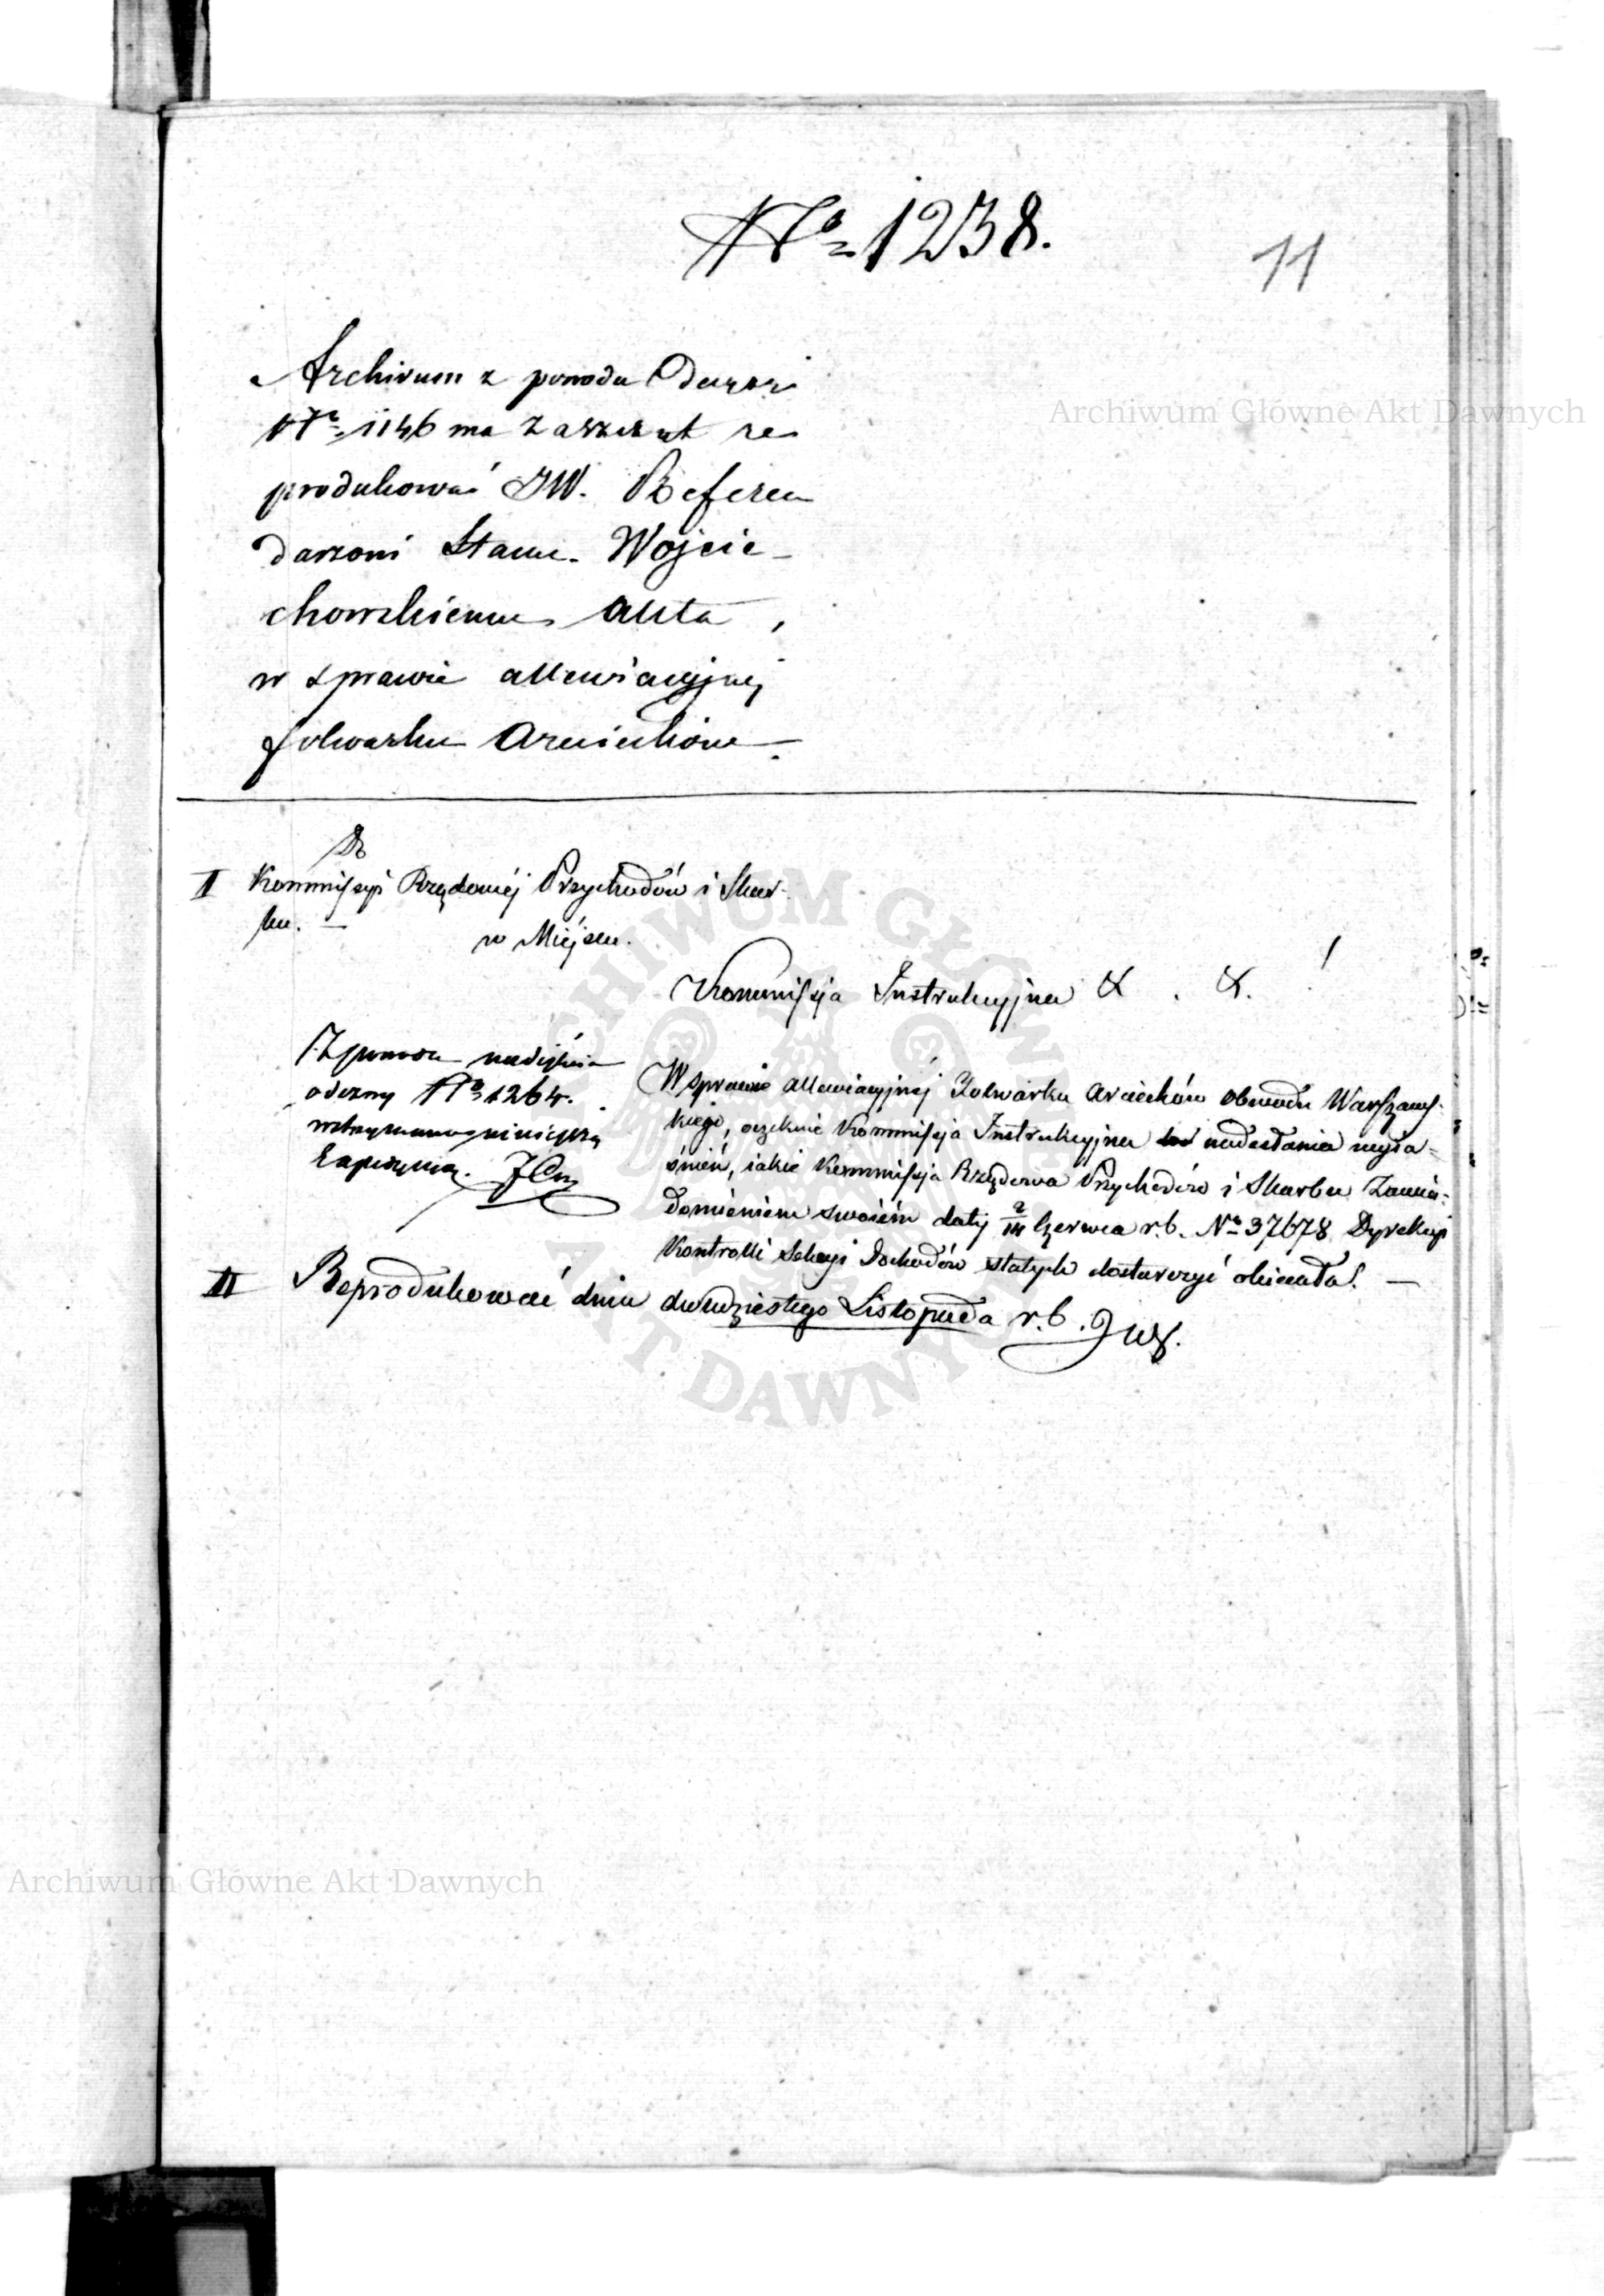 No 1238.
11
Archivum z powodu
No 1146 ma zaszczyt re
produkować JW. Referen
darzowi Stanu. Wojcie-
chowskiemu akta,
w sprawie allewiacyjnej
folwarku Arciechów.
Archiwum Główne Akt Dawnych
Do
I Kommissyi Rządowéj Przychodów i Skar-
bu. —
w Miéjscu.
Kommissja Instrukcyjna & . &.
Z powodu nadejścia
odezwy No 1264.
wstrzymano niniejszą
Expedycyą.
W sprawie allewiacyjnéj Folwarku Arciechów obwodu Warszaws-
kiego, oczekuie Kommissja Instrukcyjna nadesłania wyia-
śnień, iakie Kommissja Rządowa Przychodów i Skarbu Zawia-
domieniem swoiém daty Czerwca r. b. No 37678 Dyrekcyi
Kontrolli Sekcyi Dochodów stałych dostarczyć obiecała. —
II Reprodukować dnia dwudziestego Listopada r. b.
ARCHIWUM GŁÓWNE AKT DAWNYCH
Archiwum Główne Akt Dawnych